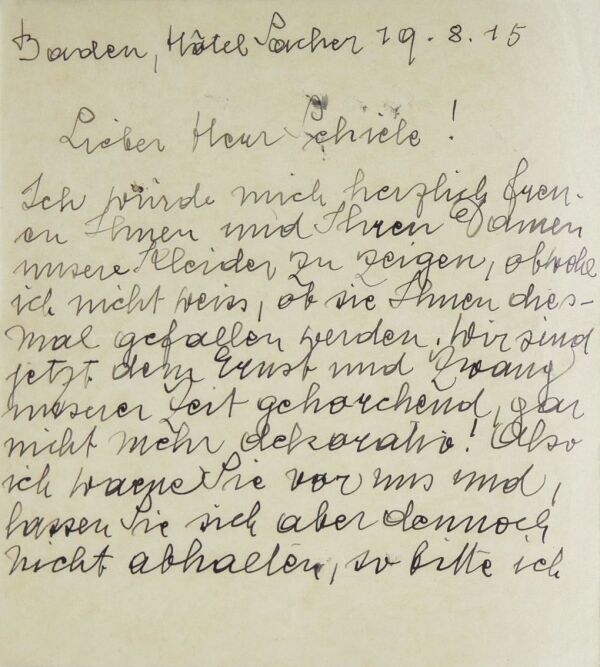 Baden, Hôtel Sacher 19.8.15
Lieber Herr Schiele!
Ich würde mich herzlich freu-
en Ihnen und Ihren Damen
unsere Kleider zu zeigen, obwohl
ich nicht weiss, ob sie Ihnen dies-
mal gefallen werden. Wir sind
jetzt dem Ernst und Zwang
unserer Zeit gehorchend, gar
nicht mehr dekorativ! Also
ich warne Sie vor uns und,
lassen Sie sich aber dennoch
nicht abhalten, so bitte ich